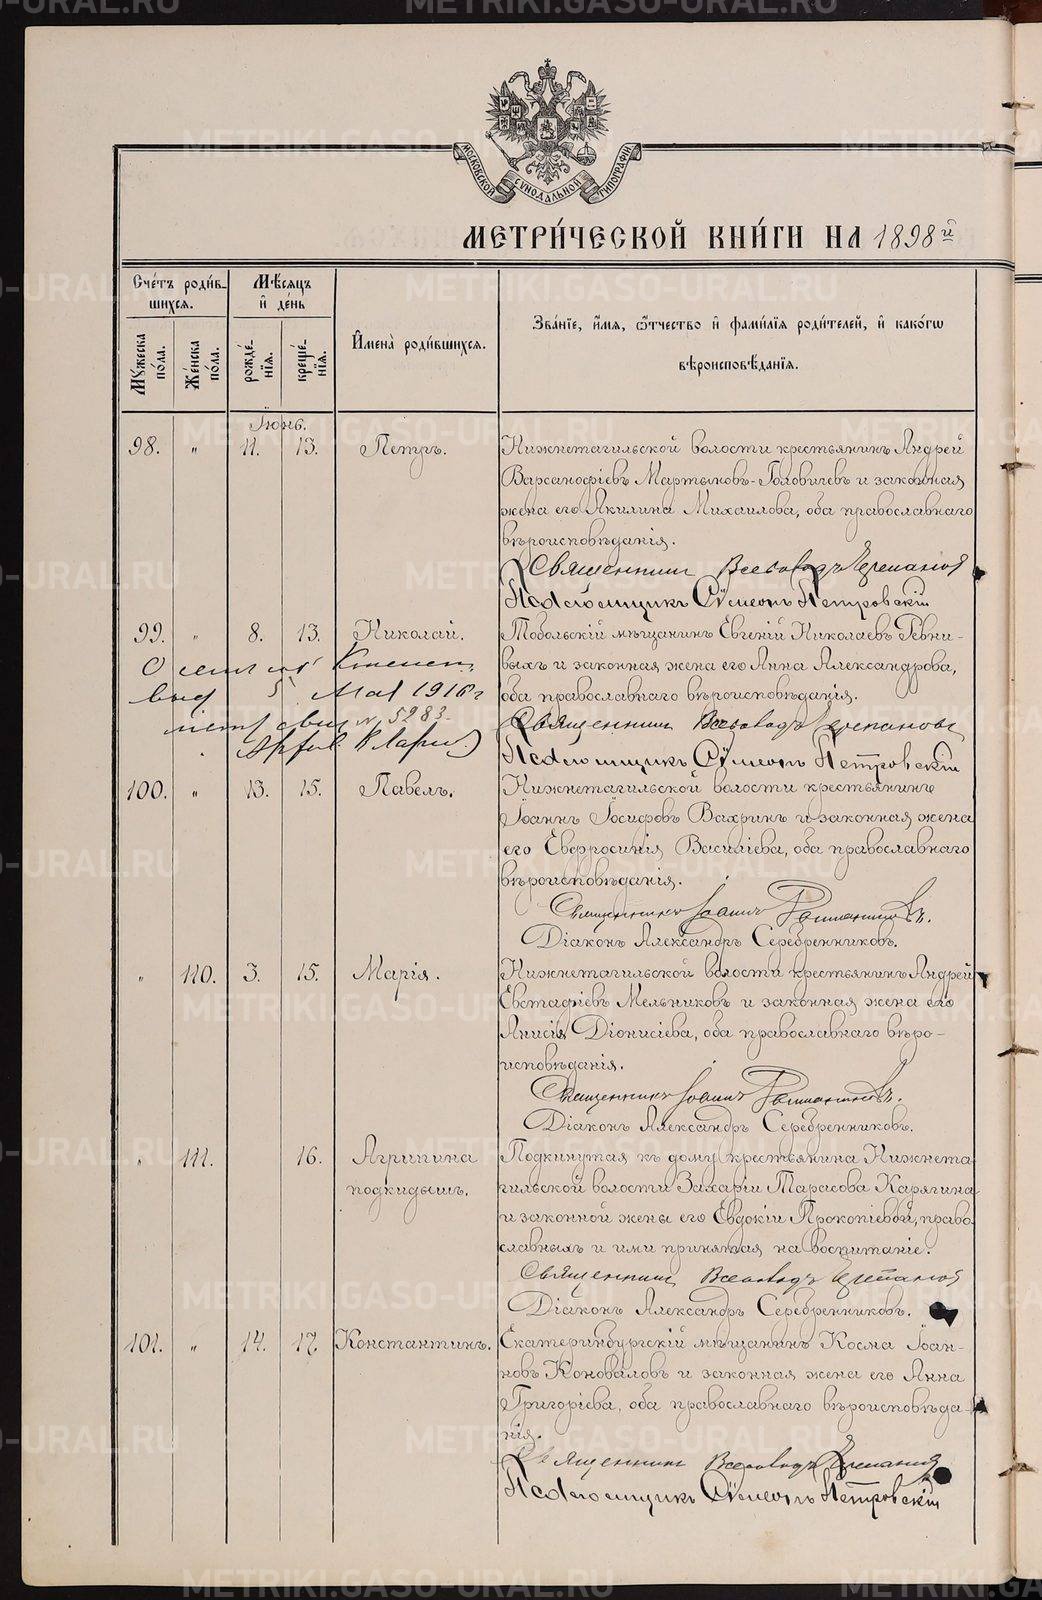 МОСКОВСКОЙ СѴНОДАЛЬНОЙ ТИПОГРАФІИ
МЕТРИ́ЧЕСКОЙ КНИ́ГИ НА 1898й
Сче́тъ роди́в-
шихся.
Мѣ́сяцъ
и҆ де́нь
И҆мена̀ роди́вшихся.
Зва́нїе, и҆́мя, ѻ҆́тчество и҆ фами́лїя роди́телей, и҆ како́гѡ
вѣроисповѣ́данїя.
Мꙋ́жеска по́ла.
Же́нска по́ла.
рожде́-
нїя.
креще́-
нїя.
Іюнь.
98. " 11. 13. Петръ.
Нижнетагильской волости крестьянинъ Андрей
Варсанофіевъ Мартыновъ-Головичевъ и законная
жена его Акилина Михаилова, оба православнаго
вѣроисповѣданія.
Священникъ Всеволодъ Черепановъ
Псаломщикъ Сѵмеонъ Петровскій
99. " 8. 13. Николай.
Тобольскій мѣщанинъ Евгеній Николаевъ Ревни-
выхъ и законная жена его Анна Александрова,
оба православнаго вѣроисповѣданія.
Священникъ Всеволодъ Черепановъ
Псаломщикъ Сѵмеонъ Петровскій
выд 5 Мая 1916 г
метр свид № 5283
100. " 13. 15. Павелъ.
Нижнетагильской волости крестьянинъ
Іоаннъ Іосифовъ Вахринъ и законная жена
его Евфросинія Василіева, оба православнаго
вѣроисповѣданія.
Священникъ Іоаннъ
Діаконъ Александръ Серебренниковъ.
" 110. 3. 15. Марія.
Нижнетагильской волости крестьянинъ Андрей
Евстафіевъ Мельниковъ и законная жена его
Анисія Діонисіева, оба православнаго вѣро-
исповѣданія.
Священникъ Іоаннъ
Діаконъ Александръ Серебренниковъ.
" 111. 16. Агрипина
подкидышъ.
Подкинутая къ дому крестьянина Нижнета-
гильской волости Захаріи Тарасова Карягина
и законной жены его Евдокіи Прокопіевой, право-
славныхъ и ими принятая на воспитаніе.
Священникъ Всеволодъ Черепановъ
Діаконъ Александръ Серебренниковъ.
101. " 14. 17. Константинъ.
Екатеринбургскій мѣщанинъ Косма Іоан-
новъ Коноваловъ и законная жена его Анна
Григоріева, оба православнаго вѣроисповѣда-
нія.
Священникъ Всеволодъ Черепановъ
Псаломщикъ Сѵмеонъ Петровскій
METRIKI.GASO-URAL.RU